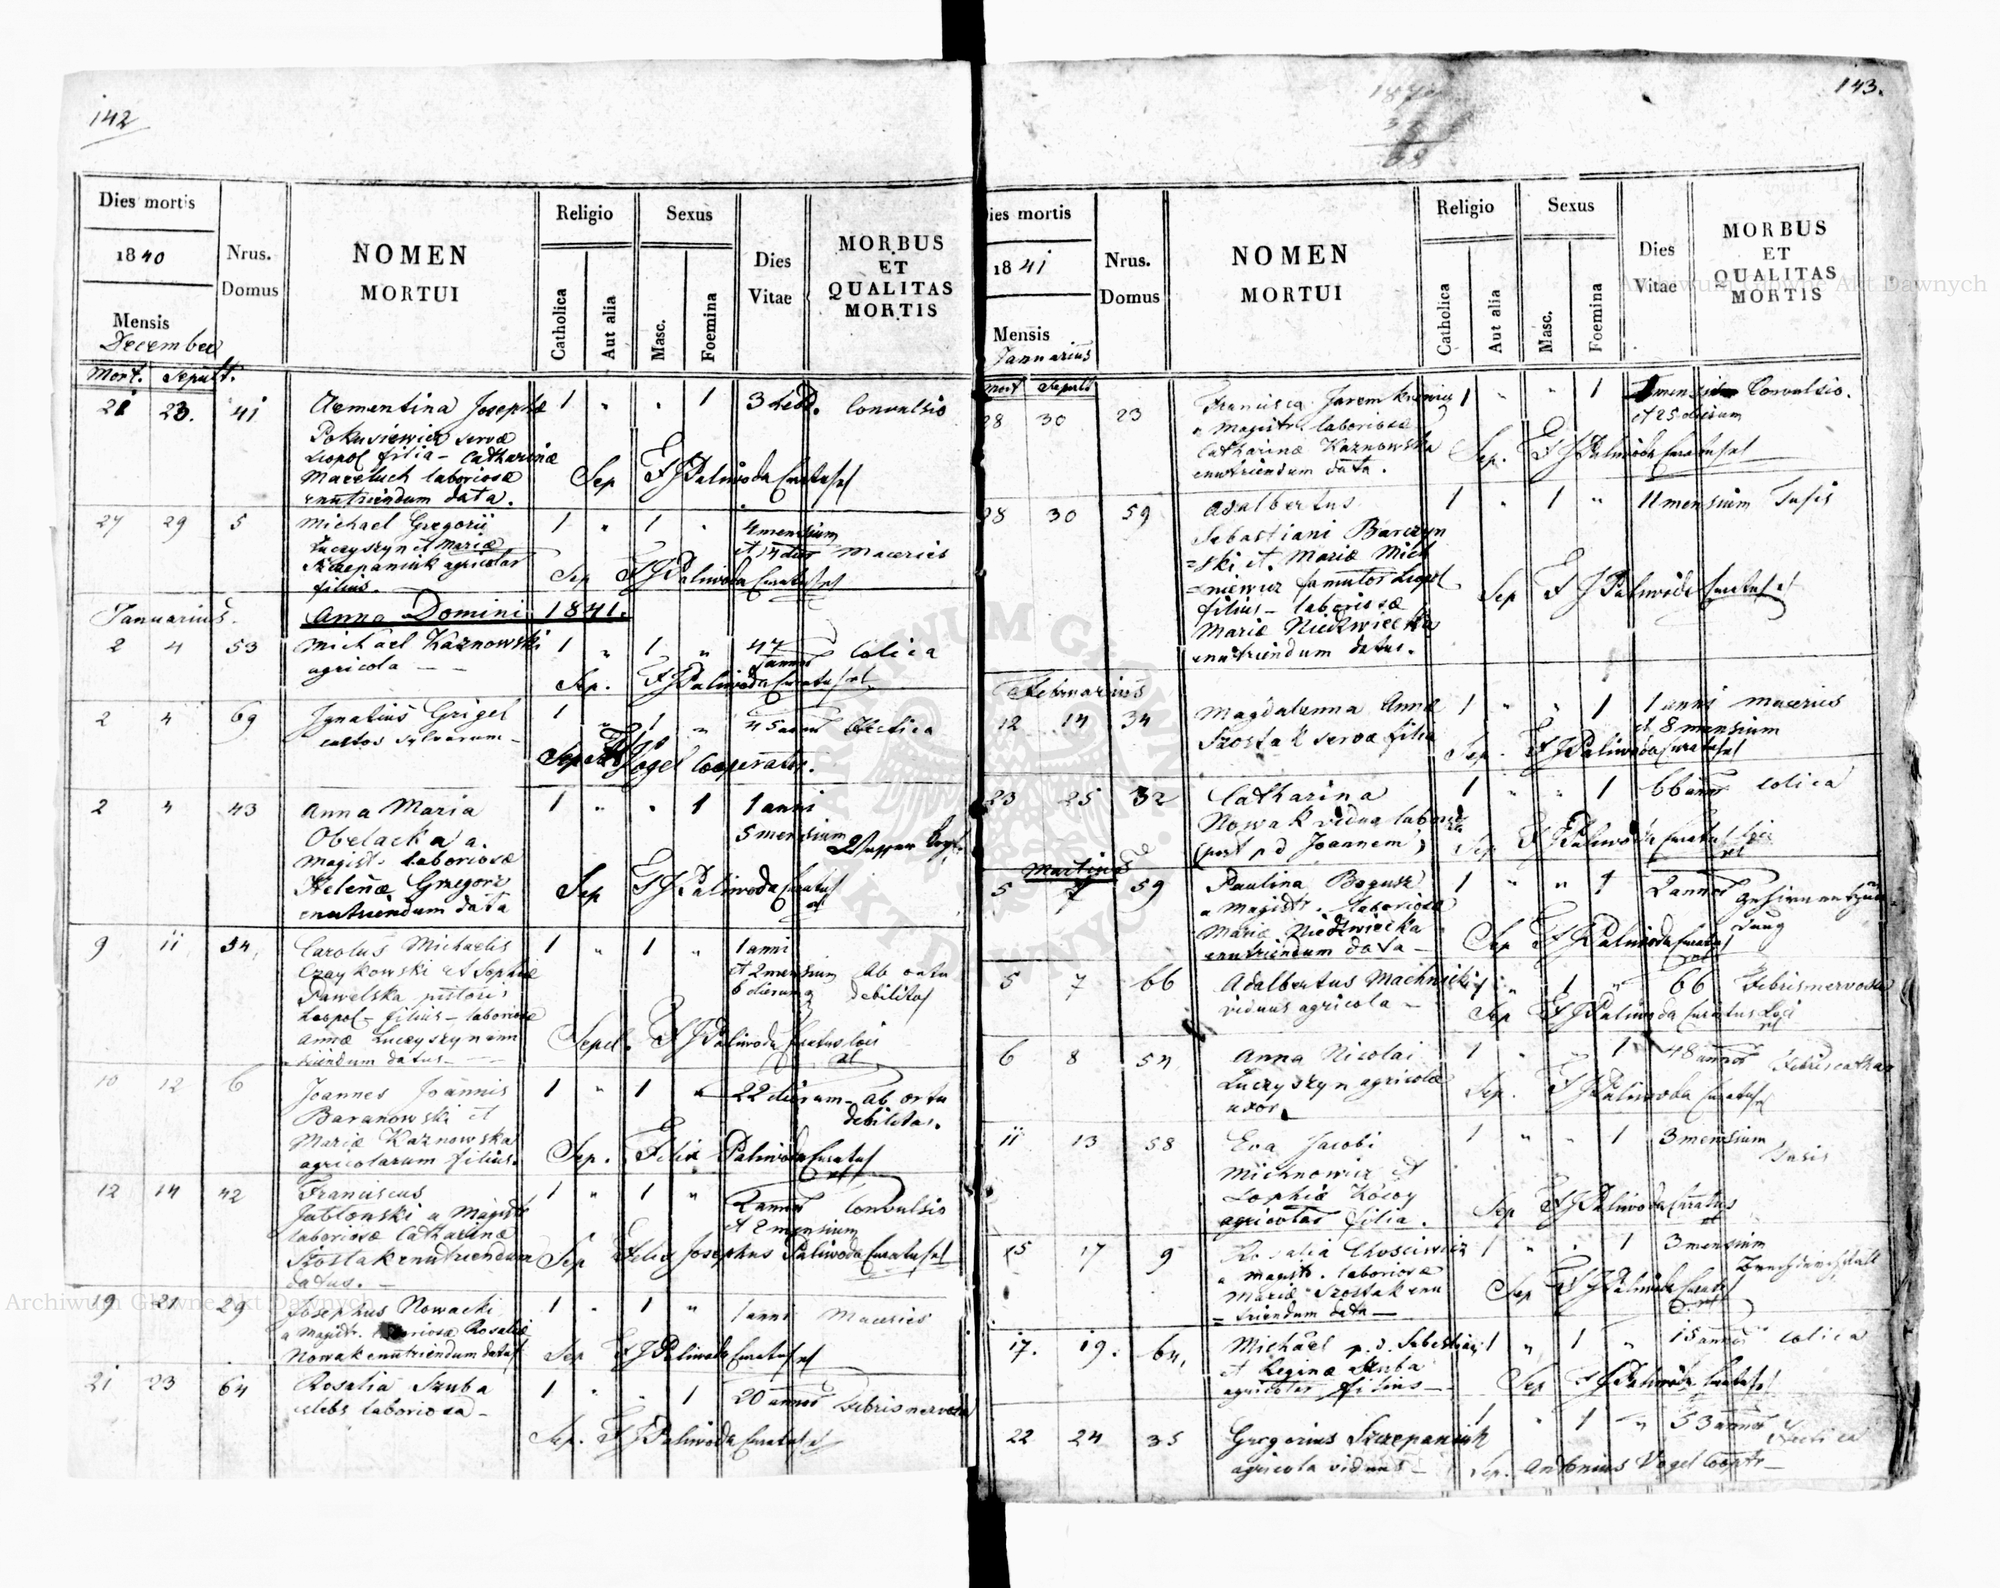 142
Dies mortis
1840
Mensis
December
Mort. Sepult.
Nrus.
Domus
NOMEN
MORTUI
Religio
Catholica
Aut alia
Sexus
Masc.
Foemina
Dies
Vitae
MORBUS
ET
QUALITAS
MORTIS
21 23. 41 Clementina Josephæ 1 " " 1 3 hebd. Convulsio
Pokusiewicz servæ
Leopol filia - Catharinæ
laboriosæ Sep F J Paliwoda Curatus
enutriendum data.
27 29 5 Michael Gregorii 1 " 1 " 4 mensium
Luczyszyn et Mariæ et 14 dier Macries
Szczepaniuk agricolar Sep F J Paliwoda Curatus
filius.
Januarius. Anno Domini 1841.
2 4 53 Michael Kaznowski 1 " 1 " 47 Colica
agricola - - annor
Sep. F J Paliwoda Curatus
2 4 69 Ignatius Grigel 1 " 1 " 45 annor Hectica
custos sylvarum -
Vogel Cooperator.
2 4 43 Anna Maria 1 " " 1 1 anni
Obelacka a. 5 mensium
Magist. laboriosæ Wasser
Helenæ Gregorz Sep F J Paliwoda Curatus
enutriendum data
9 11 54, Carolus Michaelis 1 " 1 " 1 anni
Czaykowski et Sophiæ et 2 mensium ab ortu
Pawelska pistoris 6 dierum debilitas
Leopol - filius - laboriosæ
Annæ Luczyszyn enu Sepel. F J Paliwoda Curatus loci
triendum datus - -
10 12 6 Joannes Joannis 1 " 1 " 22 dierum - ab ortu
Baranowski et debilitas.
Mariæ Kaznowska
agricolarum filius. Sep. Felix Paliwoda Curatus
12 14 42 Franciscus 1 " 1 " 2 annor Convulsio
Jablonski a Magistr et 2 mensium
laboriosæ Catharinæ
Szostak enutriendum Sep Felix Josephus Paliwoda Curatus
datus. -
19 21 29 Josephus Nowacki 1 " 1 " 1 anni Macries
a Magistr. laboriosæ Rosaliæ
Nowak enutriendum datus Sep F J Paliwoda Curatus
21 23 64 Rosalia Szuba 1 " " 1 20 annor Febris nervosa
celebs laboriosa -
Sep. F J Paliwoda Curatus
143.
Dies mortis
1841
Mensis
Januarius
Mort Sepult
Nrus.
Domus
NOMEN
MORTUI
Religio
Catholica
Aut alia
Sexus
Masc.
Foemina
Dies
Vitae
MORBUS
ET
QUALITAS
MORTIS
28 30 23 Francisca 1 " " 1 Convulsio.
a Magistr laboriosæ et 25 dierum
Catharinæ Kaznowska Sep. F J Paliwoda Curatus
enutriendum data.
28 30 59 Adalbertus 1 " 1 " 11 mensium Tusis
Sebastiani Barczyn
=ski et Mariæ Mich
=niewicz famulor Leopol
filius - laboriosæ Sep F J Paliwoda Curatus
Mariæ Niedzwiecka
enutriendum datus.
Februarius
12 14 34 Magdalenna Annæ 1 " " 1 1 anni Macries
Szostak servæ filia et 8 mensium
Sep. F J Paliwoda Curatus
23 25 32 Catharina 1 " " 1 66 annor Colica
Nowak vidua laboriosa
(post p d Joannem) Sep F J Paliwoda Curatus loci
Martius
5 7 59 Paulina Bogusz 1 " " 1 2 annor Gehirnentzün-
a Magistr. laboriosæ dung
Mariæ Niedzwiecka Sep F J Paliwoda Curatus
enutriendum data -
5 7 66 Adalbertus Machnicki 1 " 1 " 66 Febris nervosa
viduus agricola - Sep F J Paliwoda Curatus Loci
6 8 54 Anna Nicolai 1 " " 1 48 annor
Luczyszyn agricolæ Sep. F J Paliwoda Curatus
uxor.
11 13 58 Eva Jacobi 1 " " 1 3 mensium Tusis
Michnowicz et
Sophiæ Kócoy
agricolar filia. Sep F J Paliwoda Curatus
15 17 9 Rosalia 1 " " 1 3 mensium
a Magistr. laboriosæ Brechdurchfall
Mariæ Szostak enu Sep F J Paliwoda Curatus
=triendum data -
17. 19. 64, Michael p. d. Sebastiani 1 " 1 " 15 annor Colica
et Reginæ Szuba
agricolar filius - Sep F J Paliwoda Curatus
22 24 35 Gregorius Szczepaniuk 1 " 1 " 53 annor Hectica
agricola viduus - Sep. Antonius Vogel Cooptr -
Archiwum Główne Akt Dawnych
Archiwum Główne Akt Dawnych
ARCHIWUM GŁÓWNE AKT DAWNYCH